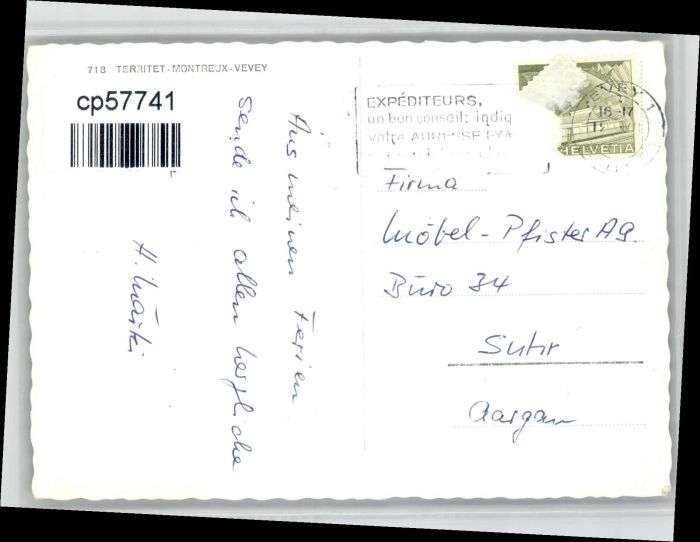 718 TERRITET-MONTREUX-VEVEY
cp57741
Aus meinen Ferien
sende ich allen herzliche
EXPÉDITEURS,
un bon conseil: indiq
votre ADRESSE EXA
VEVEY 1
HELVETIA
Firma
Möbel-Pfister AG.
Büro 34
Suhr
Aargau